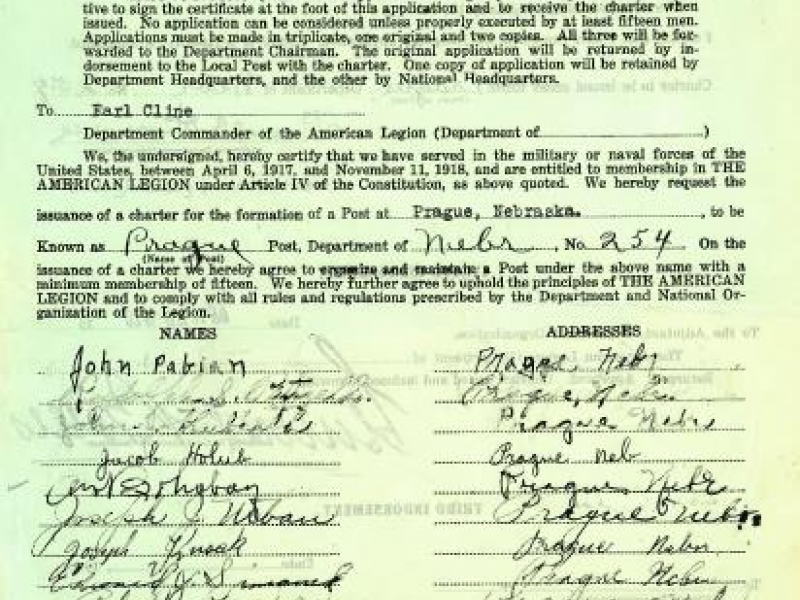 tive to sign the certificate at the foot of this application and to receive the charter when
issued. No application can be considered unless properly executed by at least fifteen men.
Applications must be made in triplicate, one original and two copies. All three will be for-
warded to the Department Chairman. The original application will be returned by in-
dorsement to the Local Post with the charter. One copy of application will be retained by
Department Headquarters, and the other by National Headquarters.
To Earl Cline
Department Commander of the American Legion (Department of )
We, the undersigned, hereby certify that we have served in the military or naval forces of the
United States, between April 6, 1917, and November 11, 1918, and are entitled to membership in THE
AMERICAN LEGION under Article IV of the Constitution, as above quoted. We hereby request the
issuance of a charter for the formation of a Post at Prague, Nebraska. , to be
Known as Prague Post, Department of Nebr , No 254 On the
(Name of Post)
issuance of a charter we hereby agree to organize and maintain a Post under the above name with a
minimum membership of fifteen. We hereby further agree to uphold the principles of THE AMERICAN
LEGION and to comply with all rules and regulations prescribed by the Department and National Or-
ganization of the Legion.
NAMES ADDRESSES
John Pabian Prague, Nebr
Prague, Nebr.
John Prague Nebr
Jacob Holub Prague Neb
Prague Nebr
Joseph J Urban Prague Nebr.
Joseph Prague Nebr.
J. Simanek Prague Nebr
THIRD INDORSEMENT